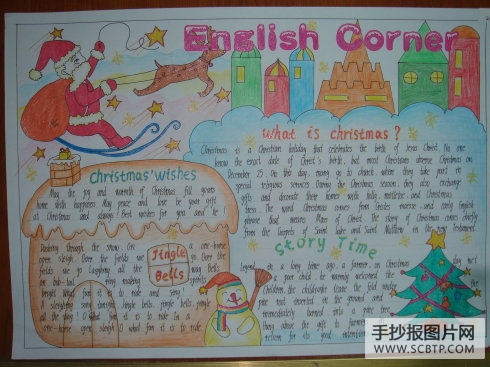 English Corner
What is christmas?
Christmas is a Christian holiday that celebrates the birth of Jesus Christ. No one
know the exact date of Christ's birth, but most Christians observe Christmas on
December 25. On this day, many go to church, where they take part in
special religious services. During the Christmas season, they also exchange
gifts and decorate their homes with holly, mistletoe and Christmas
trees. The word Christmas comes from
that means Mass of Christ. The story of Christmas comes chiefly
from the Gospels of Saint Luke and Saint Matthew in the New Testament.
Christmas' Wishes
May the joy and warmth of Christmas fill your
home with happiness. May peace and love be your gift
at Christmas and always! Best wishes for you and
Dashing through the snow On a one-horse
open sleigh Over the fields we go
fields we go Laughing all the way Bells
on bob-tail ring making spirits
bright What fun it is to ride and sing
A sleighing song tonight Jingle bells, jingle bells, jingle
all the way! O what fun it is to ride In a
one-horse open sleigh O what fun it is to ride
Jingle
Bells
Story Time
Legend
a long time ago, a farmer, on Christmas day
a poor child, warmly welcomed the
Children, the child
inserted in the ground
immediately turned into a pine tree
they
the gift to
return for its good
手抄报图片网
www.SCBTP.com